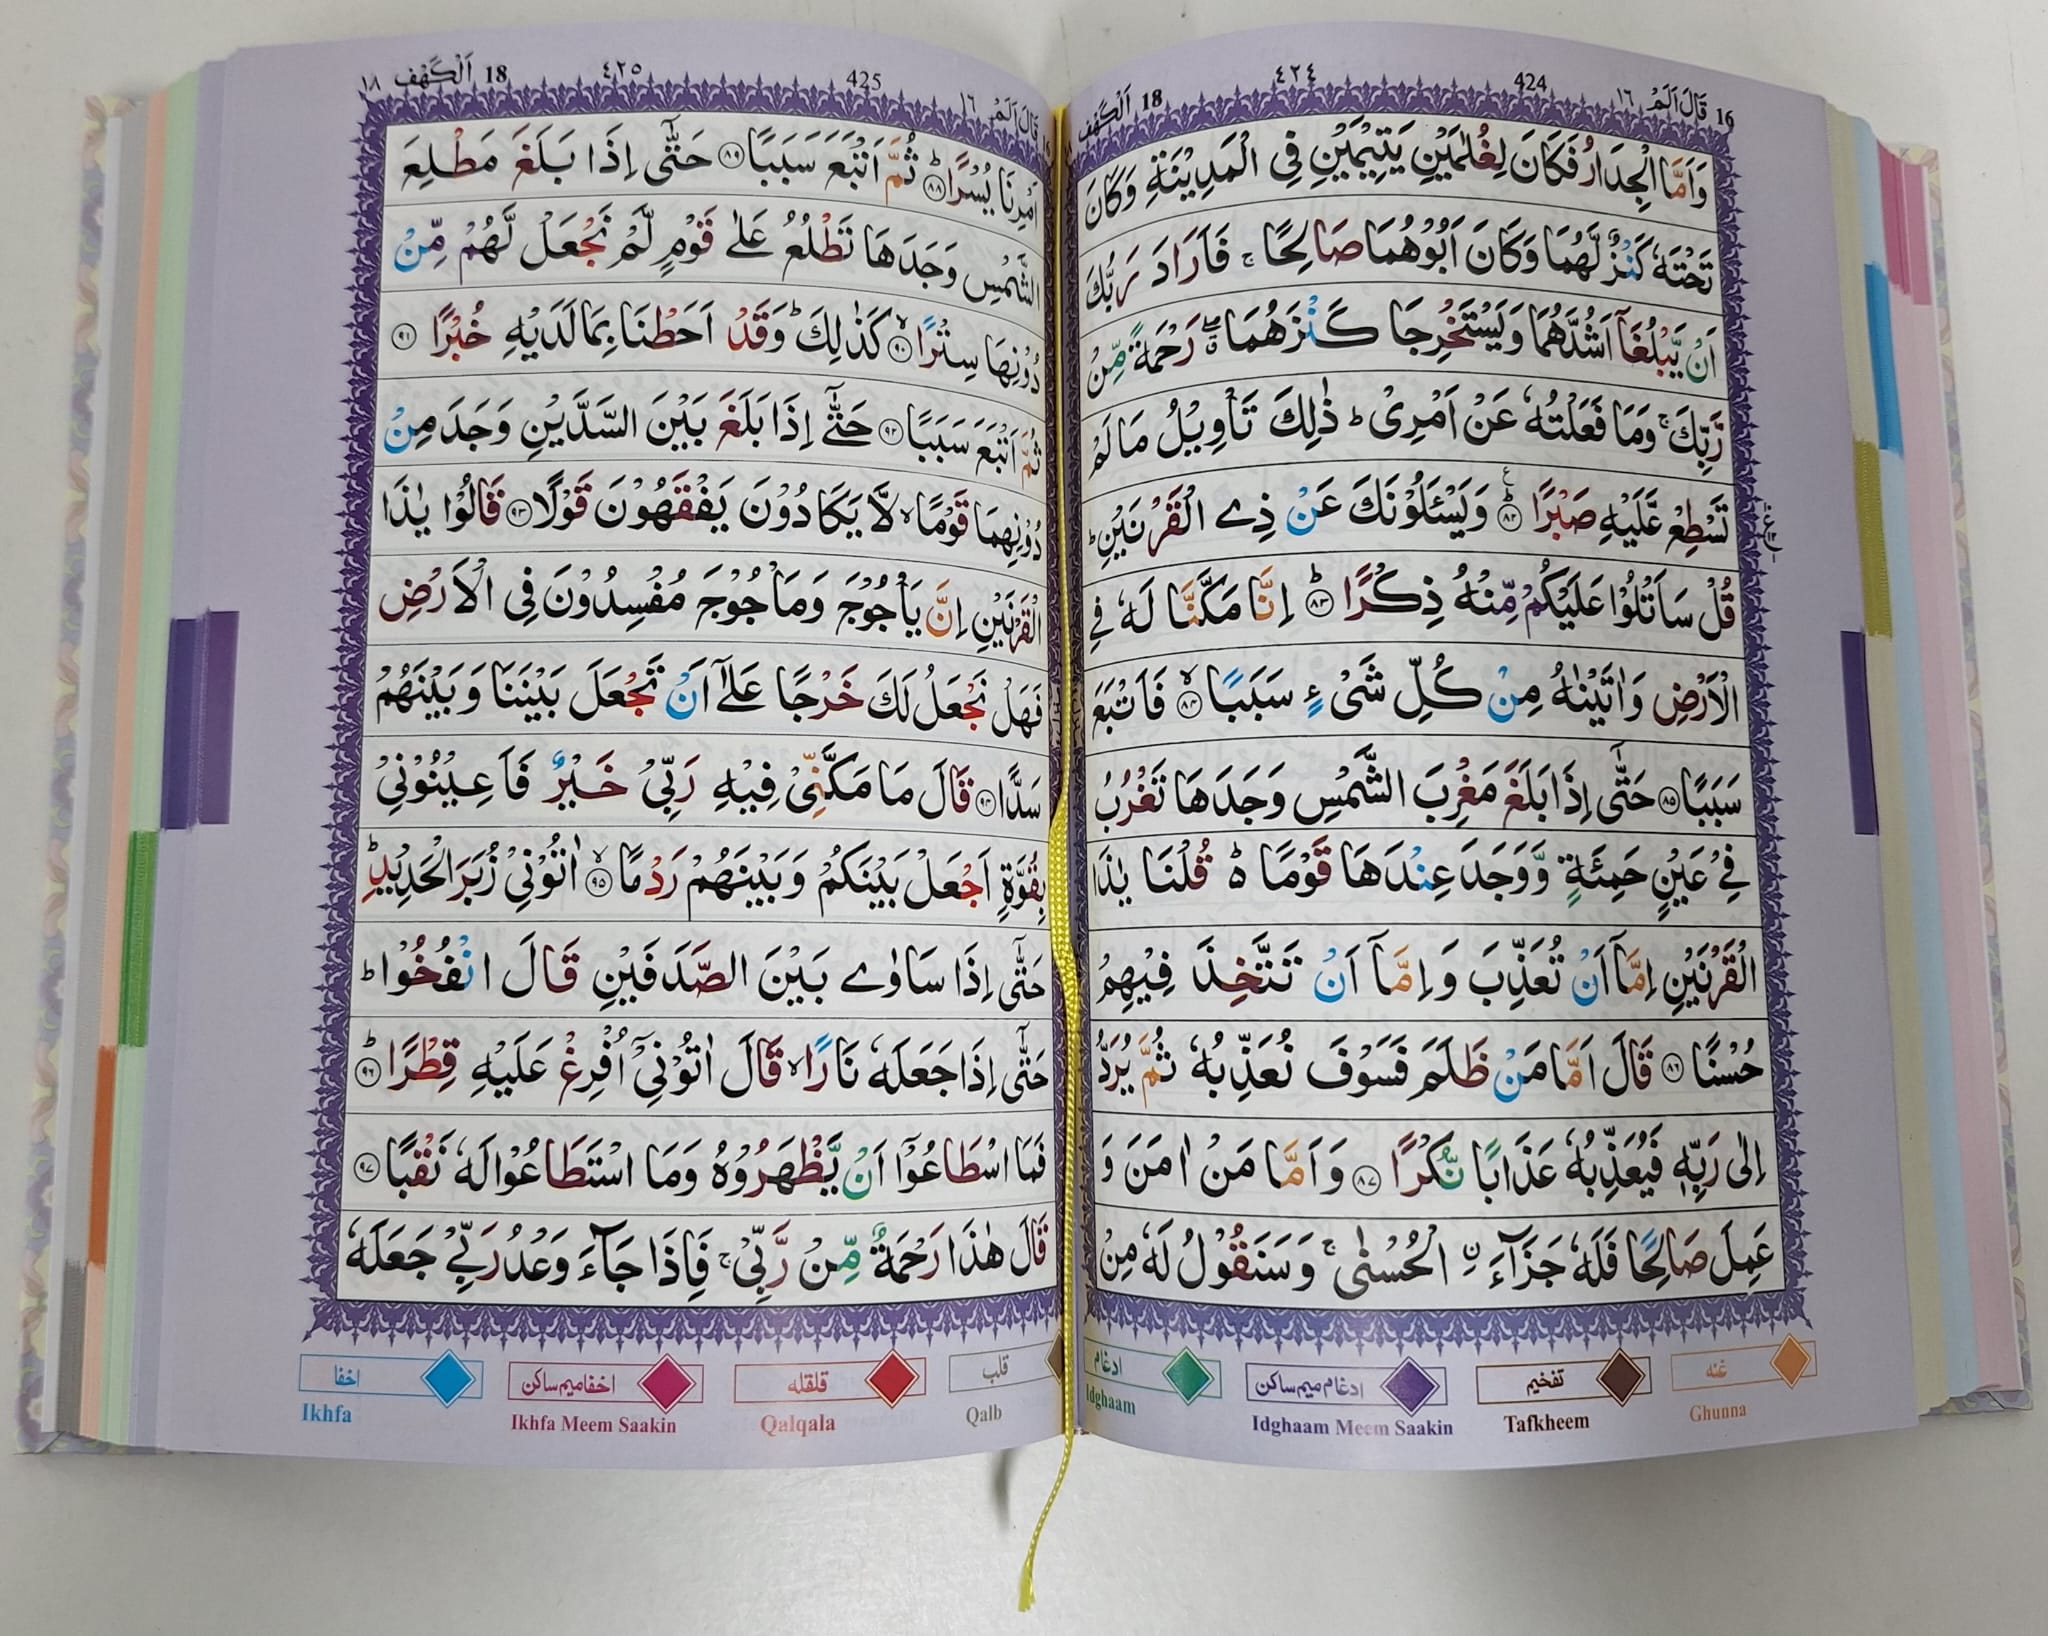 16 قَالَ اَلَمْ ١٦ 424 ٤٢٤ 18 اَلْكَهْف
وَاَمَّا الْجِدَارُ فَكَانَ لِغُلٰمَيْنِ يَتِيْمَيْنِ فِى الْمَدِيْنَةِ وَكَانَ
تَحْتَهٗ كَنْزٌ لَّهُمَا وَكَانَ اَبُوْهُمَا صَالِحًا ۚ فَاَرَادَ رَبُّكَ
اَنْ يَّبْلُغَاۤ اَشُدَّهُمَا وَيَسْتَخْرِجَا كَنْزَهُمَا ۖۗ رَحْمَةً مِّنْ
رَّبِّكَ ۚ وَمَا فَعَلْتُهٗ عَنْ اَمْرِىْ ؕ ذٰلِكَ تَاْوِيْلُ مَا لَمْ
تَسْطِعْ عَّلَيْهِ صَبْرًا ؕ۸۲ وَيَسْـَٔلُوْنَكَ عَنْ ذِى الْقَرْنَيْنِ ؕ
قُلْ سَاَتْلُوْا عَلَيْكُمْ مِّنْهُ ذِكْرًا ؕ۸۳ اِنَّا مَكَّنَّا لَهٗ فِى
الْاَرْضِ وَاٰتَيْنٰهُ مِنْ كُلِّ شَىْءٍ سَبَبًا ۙ۸۴ فَاَتْبَعَ
سَبَبًا ۸۵ حَتّٰٓى اِذَا بَلَغَ مَغْرِبَ الشَّمْسِ وَجَدَهَا تَغْرُبُ
فِىْ عَيْنٍ حَمِئَةٍ وَّوَجَدَ عِنْدَهَا قَوْمًا ؕ قُلْنَا يٰذَا
الْقَرْنَيْنِ اِمَّاۤ اَنْ تُعَذِّبَ وَاِمَّاۤ اَنْ تَتَّخِذَ فِيْهِمْ
حُسْنًا ۸۶ قَالَ اَمَّا مَنْ ظَلَمَ فَسَوْفَ نُعَذِّبُهٗ ثُمَّ يُرَدُّ
اِلٰى رَبِّهٖ فَيُعَذِّبُهٗ عَذَابًا نُّكْرًا ۸۷ وَاَمَّا مَنْ اٰمَنَ وَ
عَمِلَ صَالِحًا فَلَهٗ جَزَآءَ ۨ الْحُسْنٰى ۚ وَسَنَقُوْلُ لَهٗ مِنْ
غنه
Ghunna
تفخیم
Tafkheem
ادغام میم ساکن
Idghaam Meem Saakin
ادغام
Idghaam
قَالَ اَلَمْ ١٦ 425 ٤٢٥ 18 اَلْكَهْف ١٨
اَمْرِنَا يُسْرًا ؕ۸۸ ثُمَّ اَتْبَعَ سَبَبًا ۸۹ حَتّٰٓى اِذَا بَلَغَ مَطْلِعَ
الشَّمْسِ وَجَدَهَا تَطْلُعُ عَلٰى قَوْمٍ لَّمْ نَجْعَلْ لَّهُمْ مِّنْ
دُوْنِهَا سِتْرًا ۙ۹۰ كَذٰلِكَ ؕ وَقَدْ اَحَطْنَا بِمَا لَدَيْهِ خُبْرًا ۹۱
ثُمَّ اَتْبَعَ سَبَبًا ۹۲ حَتّٰٓى اِذَا بَلَغَ بَيْنَ السَّدَّيْنِ وَجَدَ مِنْ
دُوْنِهِمَا قَوْمًا ۙ لَّا يَكَادُوْنَ يَفْقَهُوْنَ قَوْلًا ۹۳ قَالُوْا يٰذَا
الْقَرْنَيْنِ اِنَّ يَاْجُوْجَ وَمَاْجُوْجَ مُفْسِدُوْنَ فِى الْاَرْضِ
فَهَلْ نَجْعَلُ لَكَ خَرْجًا عَلٰٓى اَنْ تَجْعَلَ بَيْنَنَا وَبَيْنَهُمْ
سَدًّا ۹۴ قَالَ مَا مَكَّنِّىْ فِيْهِ رَبِّىْ خَيْرٌ فَاَعِيْنُوْنِىْ
بِقُوَّةٍ اَجْعَلْ بَيْنَكُمْ وَبَيْنَهُمْ رَدْمًا ۙ۹۵ اٰتُوْنِىْ زُبَرَ الْحَدِيْدِ ؕ
حَتّٰٓى اِذَا سَاوٰى بَيْنَ الصَّدَفَيْنِ قَالَ انْفُخُوْا ؕ
حَتّٰٓى اِذَا جَعَلَهٗ نَارًا ۙ قَالَ اٰتُوْنِىْۤ اُفْرِغْ عَلَيْهِ قِطْرًا ؕ۹۶
فَمَا اسْطَاعُوْۤا اَنْ يَّظْهَرُوْهُ وَمَا اسْتَطَاعُوْا لَهٗ نَقْبًا ۹۷
قَالَ هٰذَا رَحْمَةٌ مِّنْ رَّبِّىْ ۚ فَاِذَا جَآءَ وَعْدُ رَبِّىْ جَعَلَهٗ
قلب
Qalb
قلقله
Qalqala
اخفا میم ساکن
Ikhfa Meem Saakin
اخفا
Ikhfa